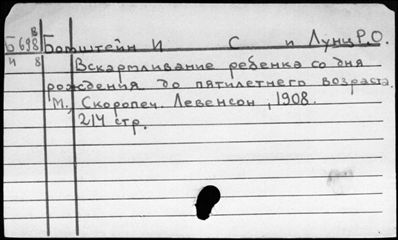 Б 698 в Ботштейн И С и Лунц Р.О.
4 8 Вскармливание ребенка со дня
рождения до пятилетнего возраста.
М., Скоропеч. Левенсон, 1908.
214 стр.